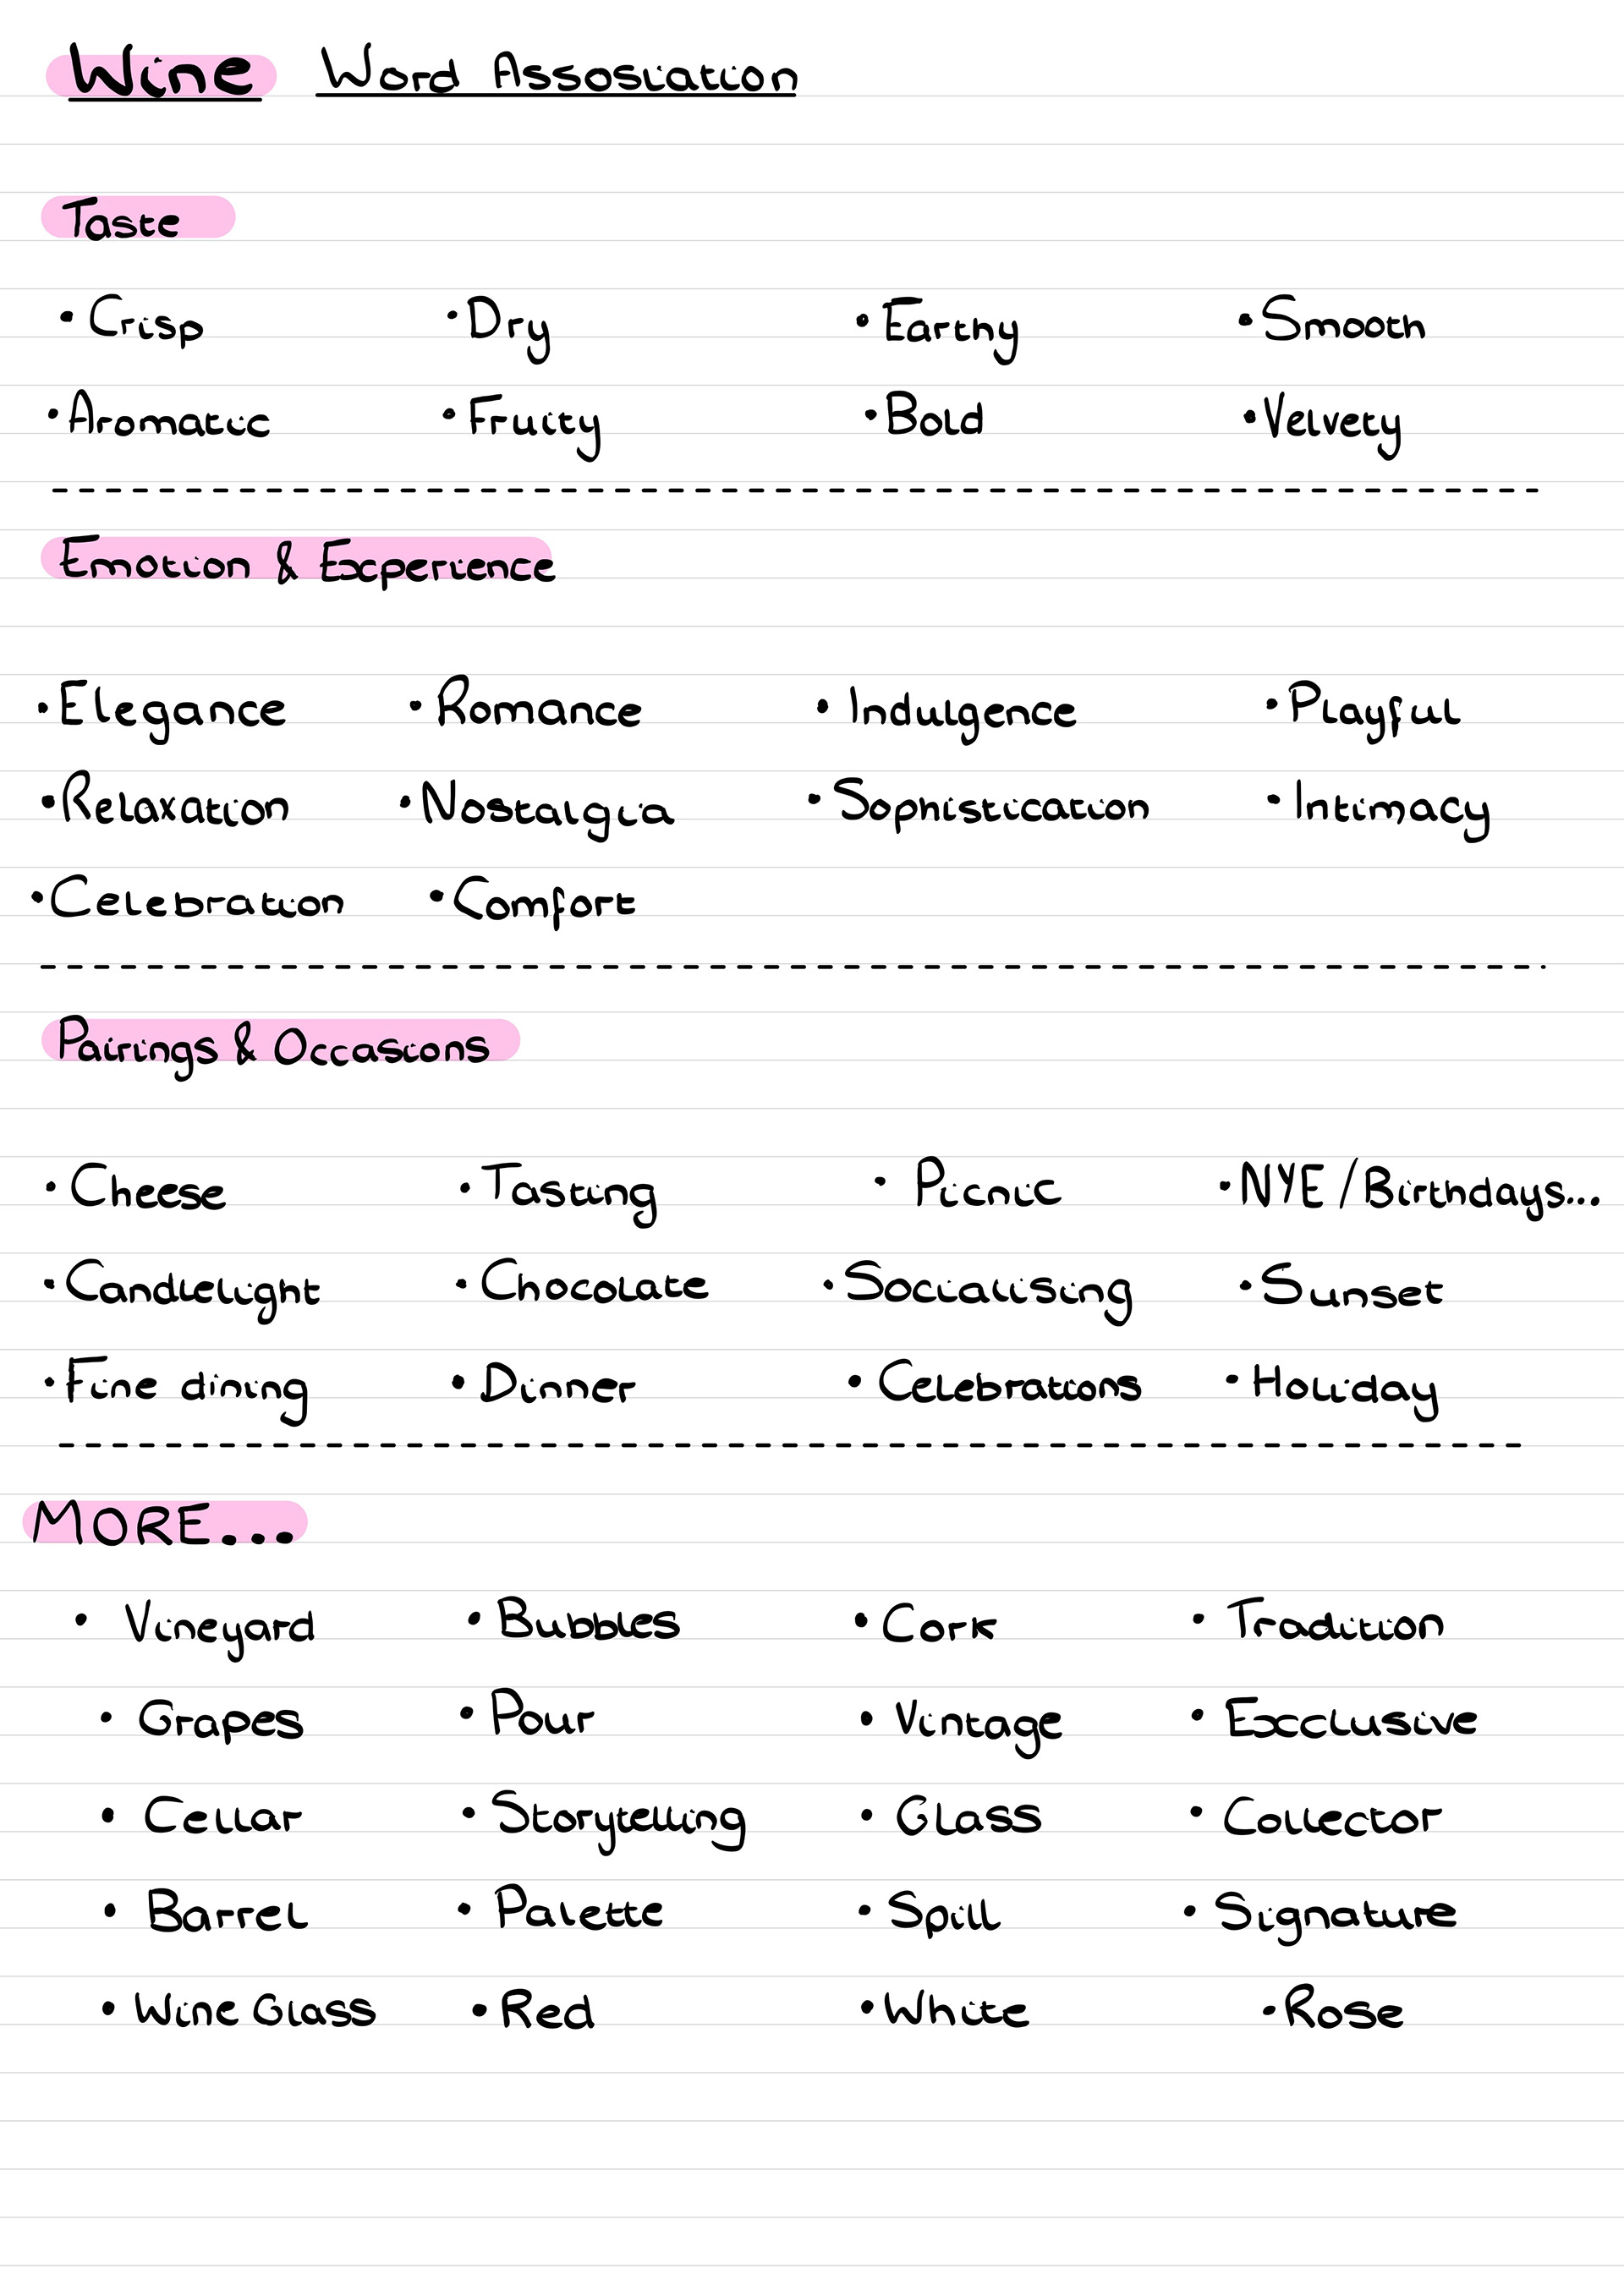 Wine Word Assosiation
Taste
• Crisp • Dry • Earthy • Smooth
• Aromatic • Fruity • Bold • Velvety
Emotion & Experience
• Elegance • Romance • Indulgence • Playful
• Relaxation • Nostalgia • Sophistication • Intimacy
• Celebration • Comfort
Pairings & Occasions
• Cheese • Tasting • Picnic • NYE / Birthdays...
• Candlelight • Chocolate • Socialising • Sunset
• Fine dining • Dinner • Celebrations • Holiday
MORE...
• Vineyard • Bubbles • Cork • Tradition
• Grapes • Pour • Vintage • Exclusive
• Cellar • Storytelling • Glass • Collector
• Barrel • Palette • Spill • Signature
• Wine Glass • Red • White • Rose